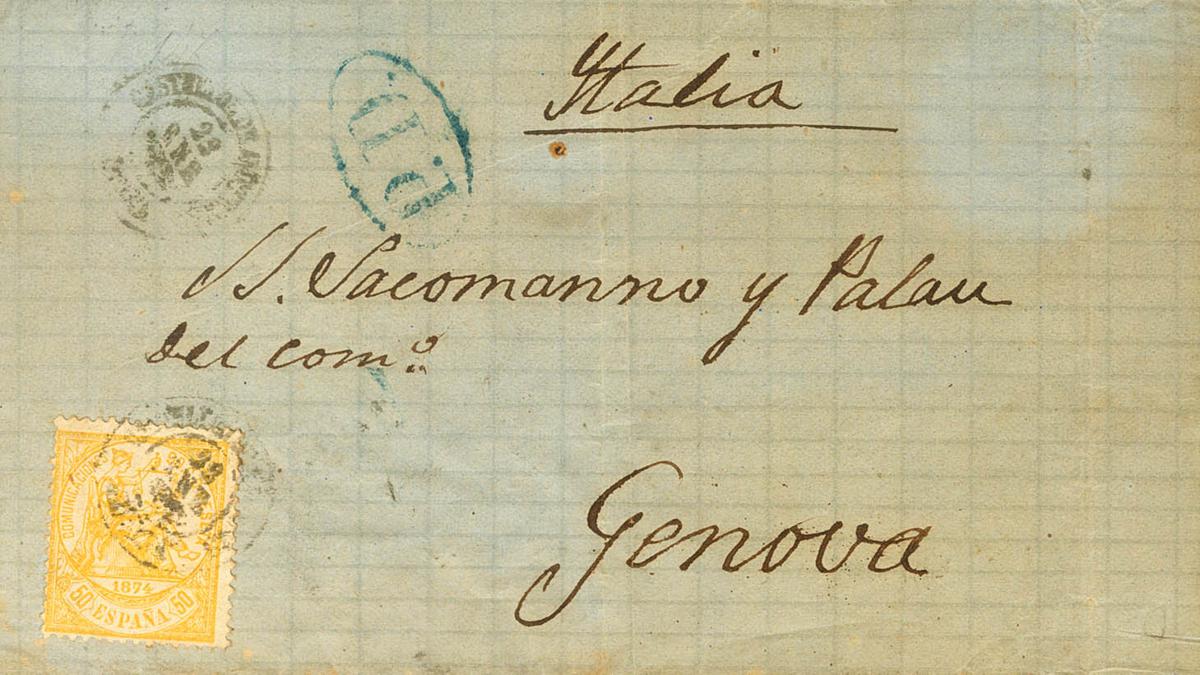 Italia
P.D.
SS. Sacomanno y Palau
del com.º
Genova
COMUNICACIONES
1874
50 ESPAÑA 50